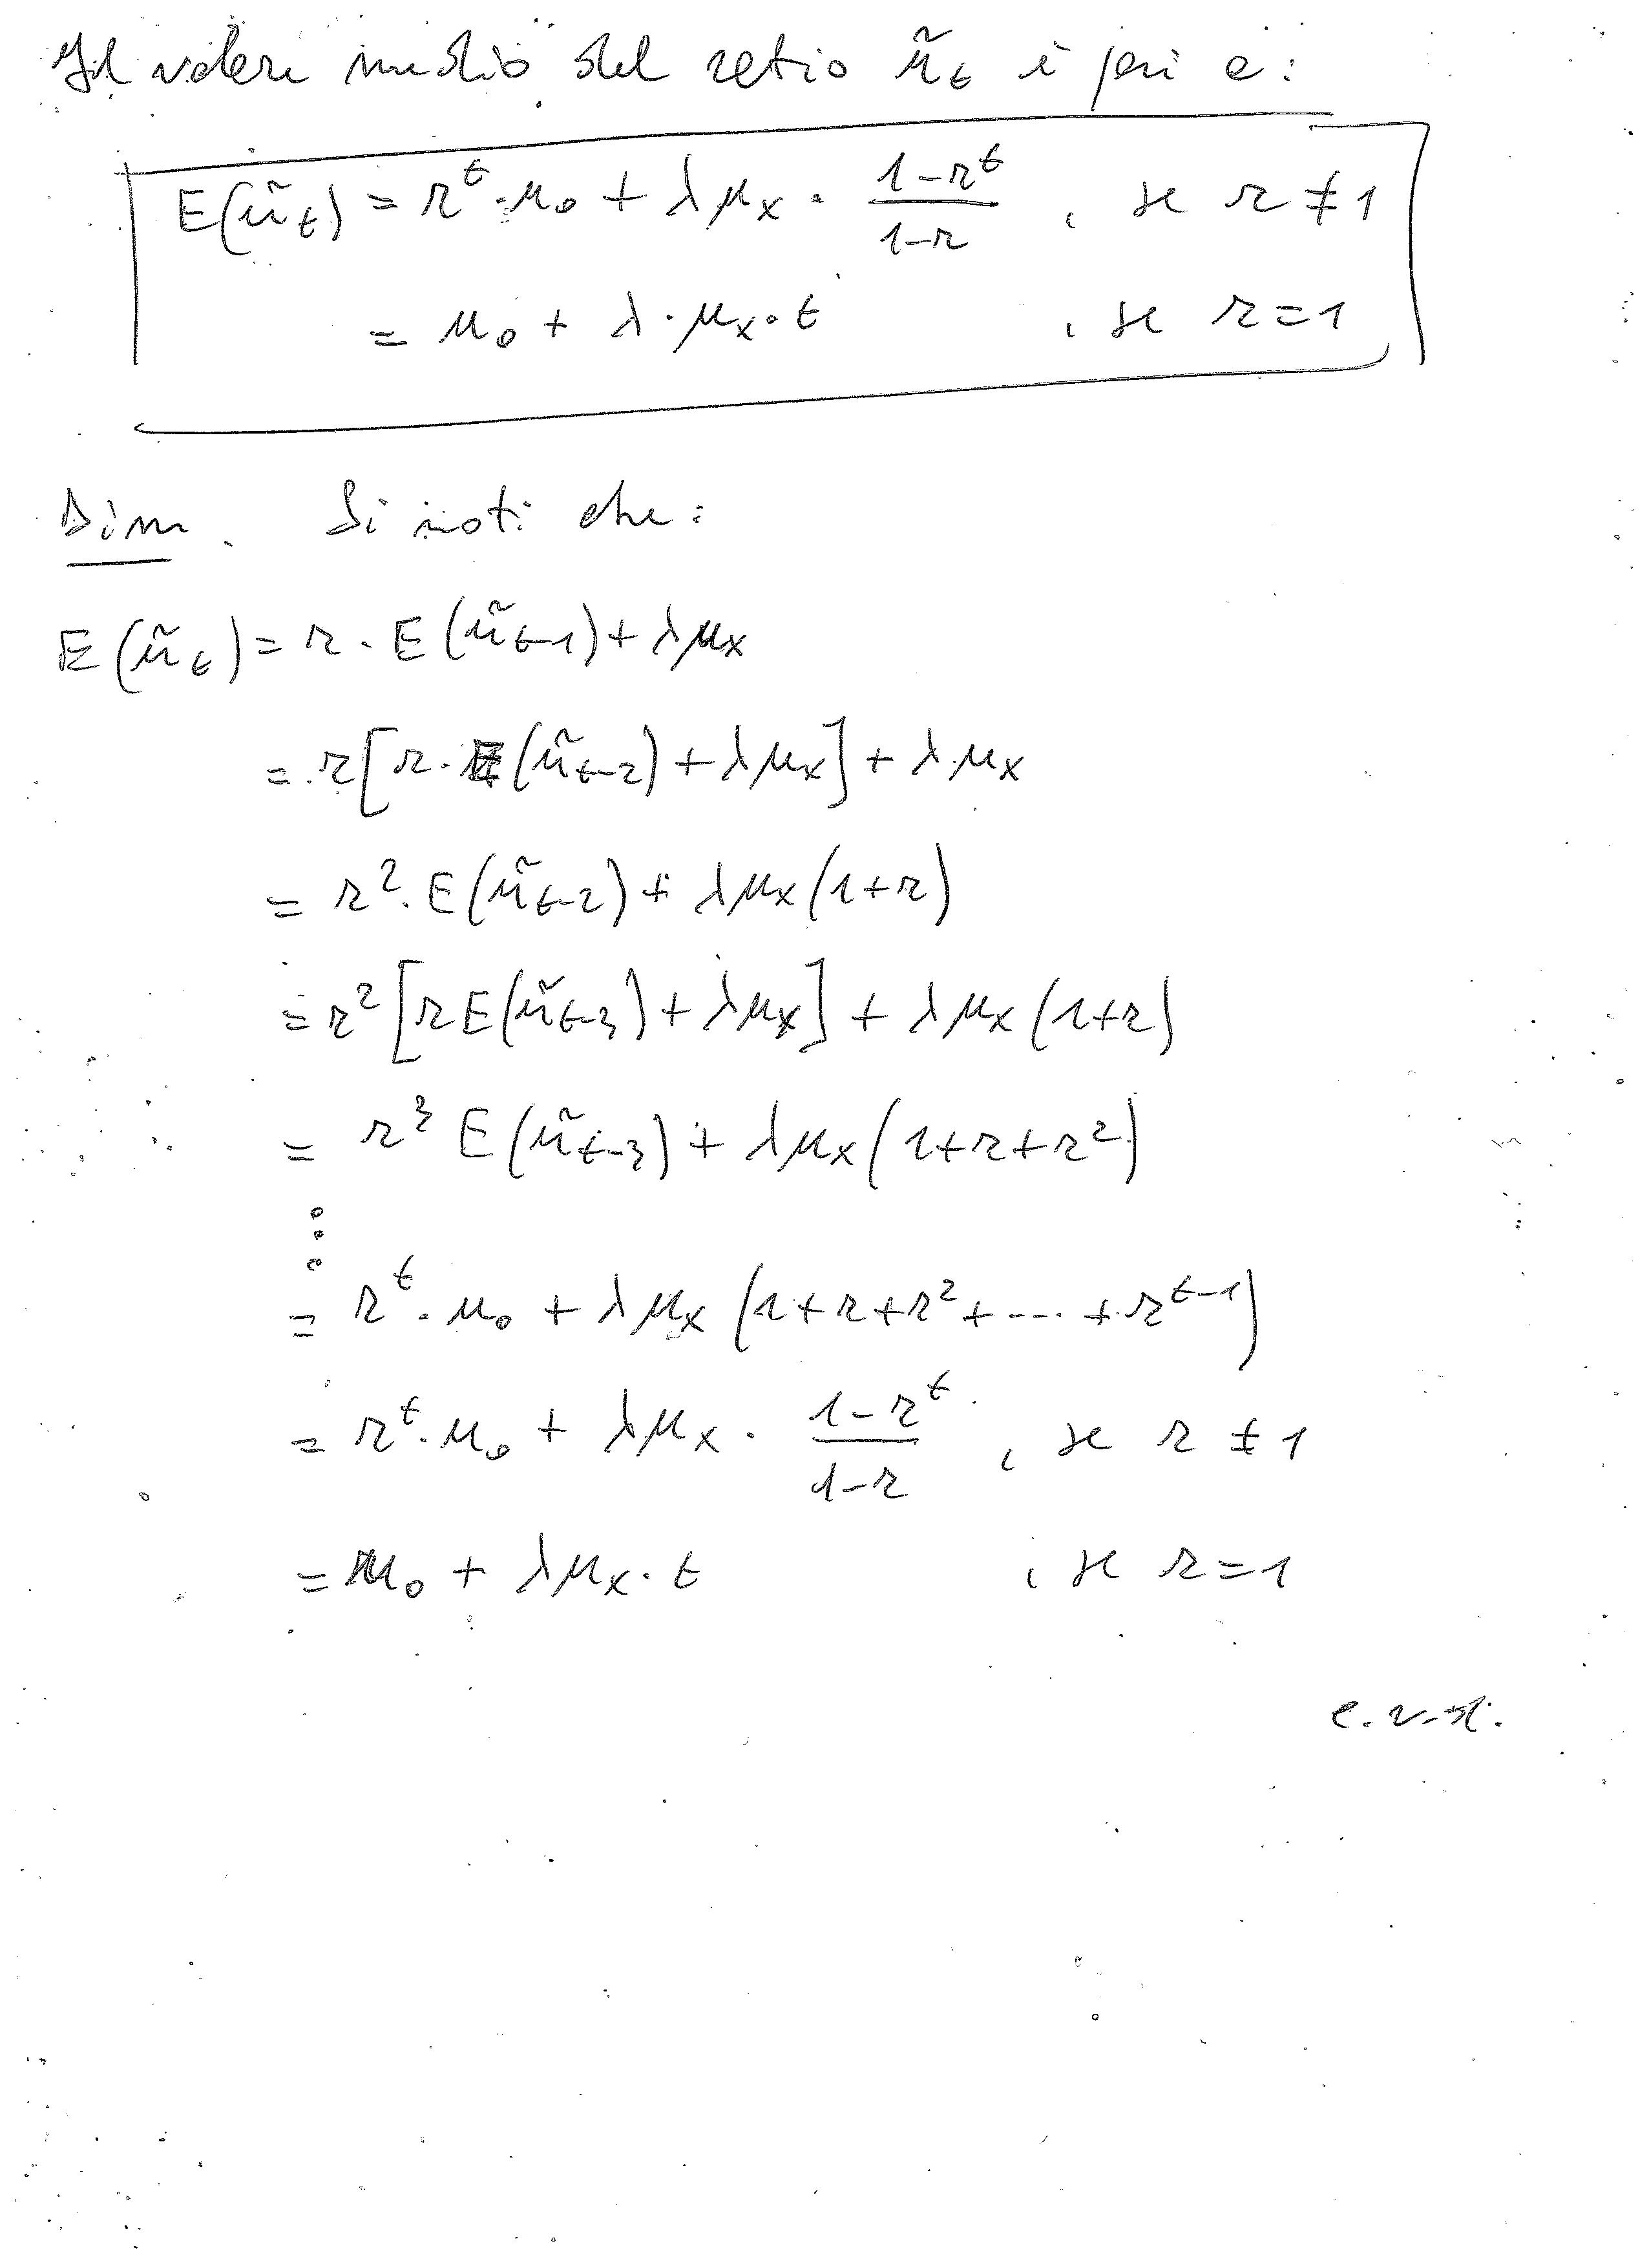 Il valore medio del ratio ũₜ è pari a:
E(ũₜ) = rᵗ · u₀ + λ μₓ · (1 - rᵗ)/(1 - r) , se r ≠ 1
= u₀ + λ · μₓ · t , se r = 1
Dim. Si noti che:
E(ũₜ) = r · E(ũₜ₋₁) + λ μₓ
= r [r · E(ũₜ₋₂) + λ μₓ] + λ μₓ
= r² · E(ũₜ₋₂) + λ μₓ (1 + r)
= r² [r E(ũₜ₋₃) + λ μₓ] + λ μₓ (1 + r)
= r³ E(ũₜ₋₃) + λ μₓ (1 + r + r²)
⋮
= rᵗ · u₀ + λ μₓ (1 + r + r² + ... + rᵗ⁻¹)
= rᵗ · u₀ + λ μₓ · (1 - rᵗ)/(1 - r) , se r ≠ 1
= u₀ + λ μₓ · t , se r = 1
c.v.d.